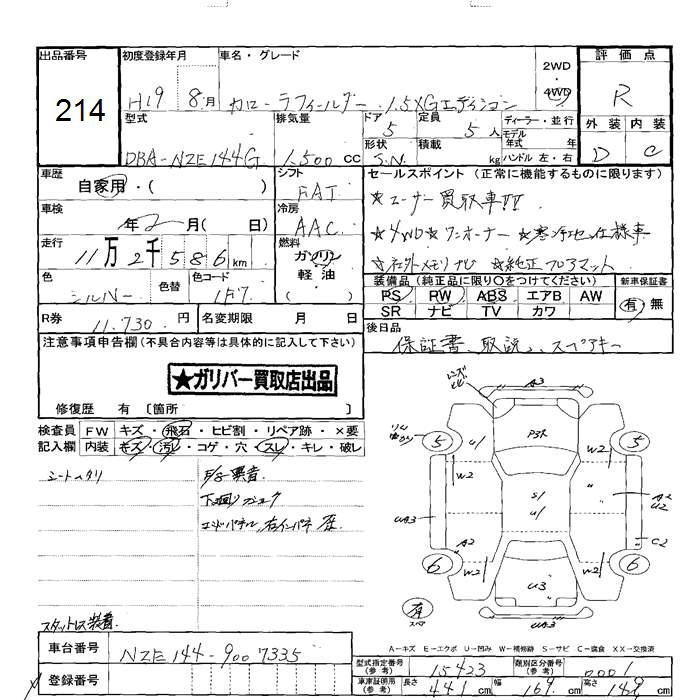 出品番号
214
初度登録年月
H19 8月
車名・グレード
カローラフィールダー 1.5XGエディション
2WD
・
4WD
評価点
R
外装 内装
D C
型式
DBA-NZE144G
排気量
1,500 cc
ドア
5
定員
5人
形状
S.W
積載
kg
ディーラー・並行
モデル
年式 年
ハンドル 左・右
車歴
自家用・( )
シフト
FAT
車検
年2月( 日)
冷房
AAC
走行
11万2千586km
燃料
ガソリン
軽油
( )
色
シルバー
色替
色コード
1F7
R券
11,730 円
名変期限 月 日
セールスポイント (正常に機能するものに限ります)
★ユーザー買取車!!
★4WD★ワンオーナー★寒冷地仕様車
★社外メモリナビ ★純正フロアマット
装備品 (純正品に限り○をつけてください)
PS PW ABS エアB AW
SR ナビ TV カワ
新車保証書
有 無
後日品
保証書、取説、スペアキー
注意事項申告欄 (不具合内容等は具体的に記入して下さい)
★ガリバー買取店出品
修復歴 有 〔箇所 〕
検査員
記入欄
FW キズ・飛石・ヒビ割・リペア跡・×要
内装 キズ・汚レ・コゲ・穴・スレ・キレ・破レ
シートヘタリ
下回り
エンドパネル、右インパネ
スタットレス装着
車台番号
NZE144-9007335
登録番号
A3
P3大
5
5
U/
W2
W2
S/
U/
A2
U2
UA3
A2
C2
6
6
W2
W2
U3
UA3
有
スペア
A－キズ E－エクボ U－凹み W－補修跡 S－サビ C－腐食 XX－交換済
型式指定番号
(参考)
15423
類別区分番号
(参考)
0001
車庫証明用
(参考)
長さ 441 cm 幅 169 cm 高さ 149 cm